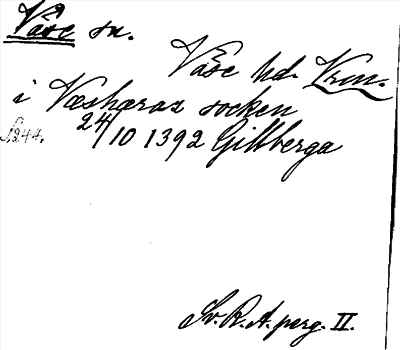 Väse sn.
Väse hd. Vrm.
i Væshæraz socken
S. 244. 24/10 1392 Gillberga
Sv. R. A. perg. II.